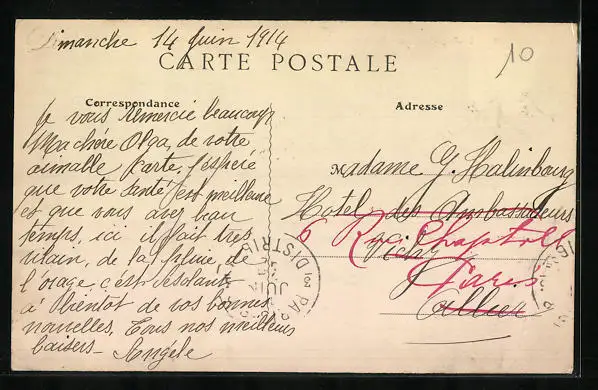 Dimanche 14 Juin 1914
10
CARTE POSTALE
Correspondance
Adresse
Je vous remercie beaucoup
Ma chère Olga, de votre
aimable carte. J'espère
que votre santé est meilleure
et que vous avez beau
temps, ici il fait très
vilain, de la pluie de
l'orage, c'est désolant
à bientôt de vos bonnes
nouvelles. Tous nos meilleurs
baisers - Angèle
Madame G. Halinbourg
Hotel des Ambassadeurs
6 Rue Chaptal
Vichy
Paris
Allier
PARIS DISTRIB
JUIN